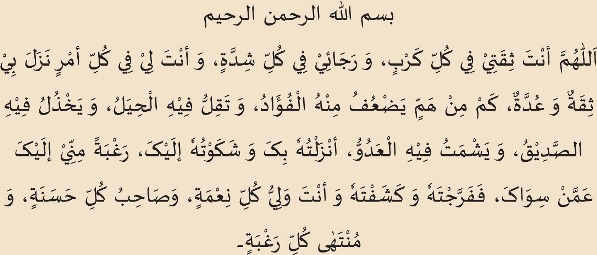 بسم الله الرحمن الرحيم
اَللّٰهُمَّ أَنْتَ ثِقَتِيْ فِي كُلِّ كَرْبٍ، وَ رَجَائِيْ فِي كُلِّ شِدَّةٍ، وَ أَنْتَ لِيْ فِي كُلِّ أَمْرٍ نَزَلَ بِيْ
ثِقَةٌ وَ عُدَّةٌ، كَمْ مِنْ هَمٍّ يَضْعُفُ مِنْهُ الْفُؤَادُ، وَ تَقِلُّ فِيْهِ الْحِيَلُ، وَ يَخْذُلُ فِيْهِ
الصَّدِيْقُ، وَ يَشْمَتُ فِيْهِ الْعَدُوُّ، أَنْزَلْتُهٗ بِکَ وَ شَکَوْتُهٗ إِلَيْکَ، رَغْبَةً مِنِّيْ إِلَيْکَ
عَمَّنْ سِوَاکَ، فَفَرَّجْتَهٗ وَ کَشَفْتَهٗ وَ أَنْتَ وَلِيُّ کُلِّ نِعْمَةٍ، وَصَاحِبُ کُلِّ حَسَنَةٍ، وَ
مُنْتَهٰی کُلِّ رَغْبَةٍ۔